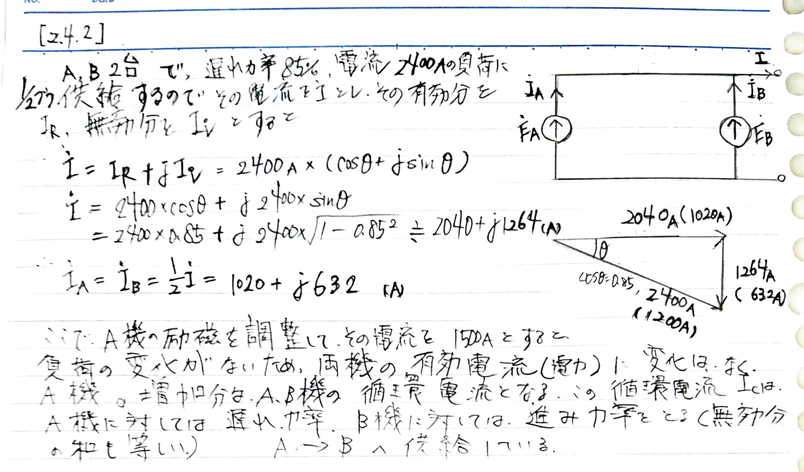 [2.4.2]
A, B 2台 で, 遅れ力率 85%, 電流 2400Aの負荷に
1/2づつ供給するので その電流を İ とし、その有効分を
IR, 無効分を Ii とすると
İ = IR + jIi = 2400A × (cosθ + j sinθ)
İ = 2400×cosθ + j 2400× sinθ
= 2400 × 0.85 + j 2400×√1-0.85² ≒ 2040 + j1264 (A)
∴ İA = İB = 1/2 İ = 1020 + j632 (A)
I
İA
İB
ĖA
ĖB
2040A (1020A)
θ
cosθ=0.85, 2400A
(1200A)
1264A
(632A)
ここで A機の励磁を調整して その電流を 1500A とすると
負荷の変化がないため, 両機の有効電流(電力)に 変化は なく
A機の 増加分は A, B機の 循環電流となる. この循環電流 Icは
A機に対しては 遅れ力率, B機に対しては 進み力率をとる (無効分
の和も等しい) A → B へ供給している.